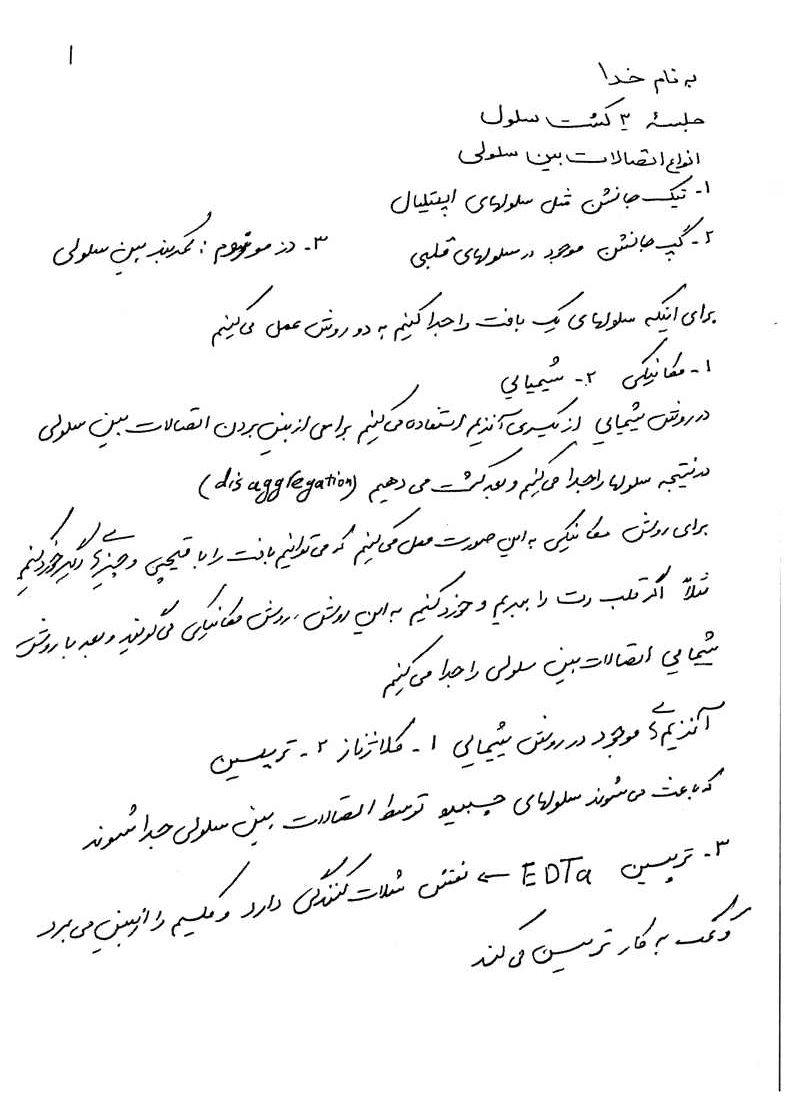 ۱
به نام خدا
جلسهٔ ۳ کشت سلول
انواع اتصالات بین سلولی
۱- تیک جانشن مثل سلولهای اپیتلیال
۲- گپ جانشن موجود در سلولهای قلبی ۳- دزموزوم : کمربند بین سلولی
برای اینکه سلولهای یک بافت را جدا کنیم به دو روش عمل می‌کنیم
۱- مکانیکی ۲- شیمیایی
در روش شیمیایی از یکسری آنزیم استفاده می‌کنیم برای از بین بردن اتصالات بین سلولی
در نتیجه سلولها را جدا می‌کنیم و بعد کشت می دهیم (disaggregation)
برای روش مکانیکی به این صورت عمل می‌کنیم که می‌توانیم بافت را با قیچی و چیزهای دیگر خورد کنیم
مثلاً اگر قلب رت را ببریم و خورد کنیم به این روش، روش مکانیکی می‌گویند و بعد با روش
شیمیایی اتصالات بین سلولی را جدا می‌کنیم
آنزیم‌های موجود در روش شیمیایی ۱- کلاژناز ۲- تریپسین
که باعث می‌شوند سلولهای چسبیده توسط اتصالات بین سلولی جدا شوند
۳- تریپسین EDTa ← نقش شلات کنندگی دارد و کلسیم را از بین می برد
و کمک به کار تریپسین می‌کند